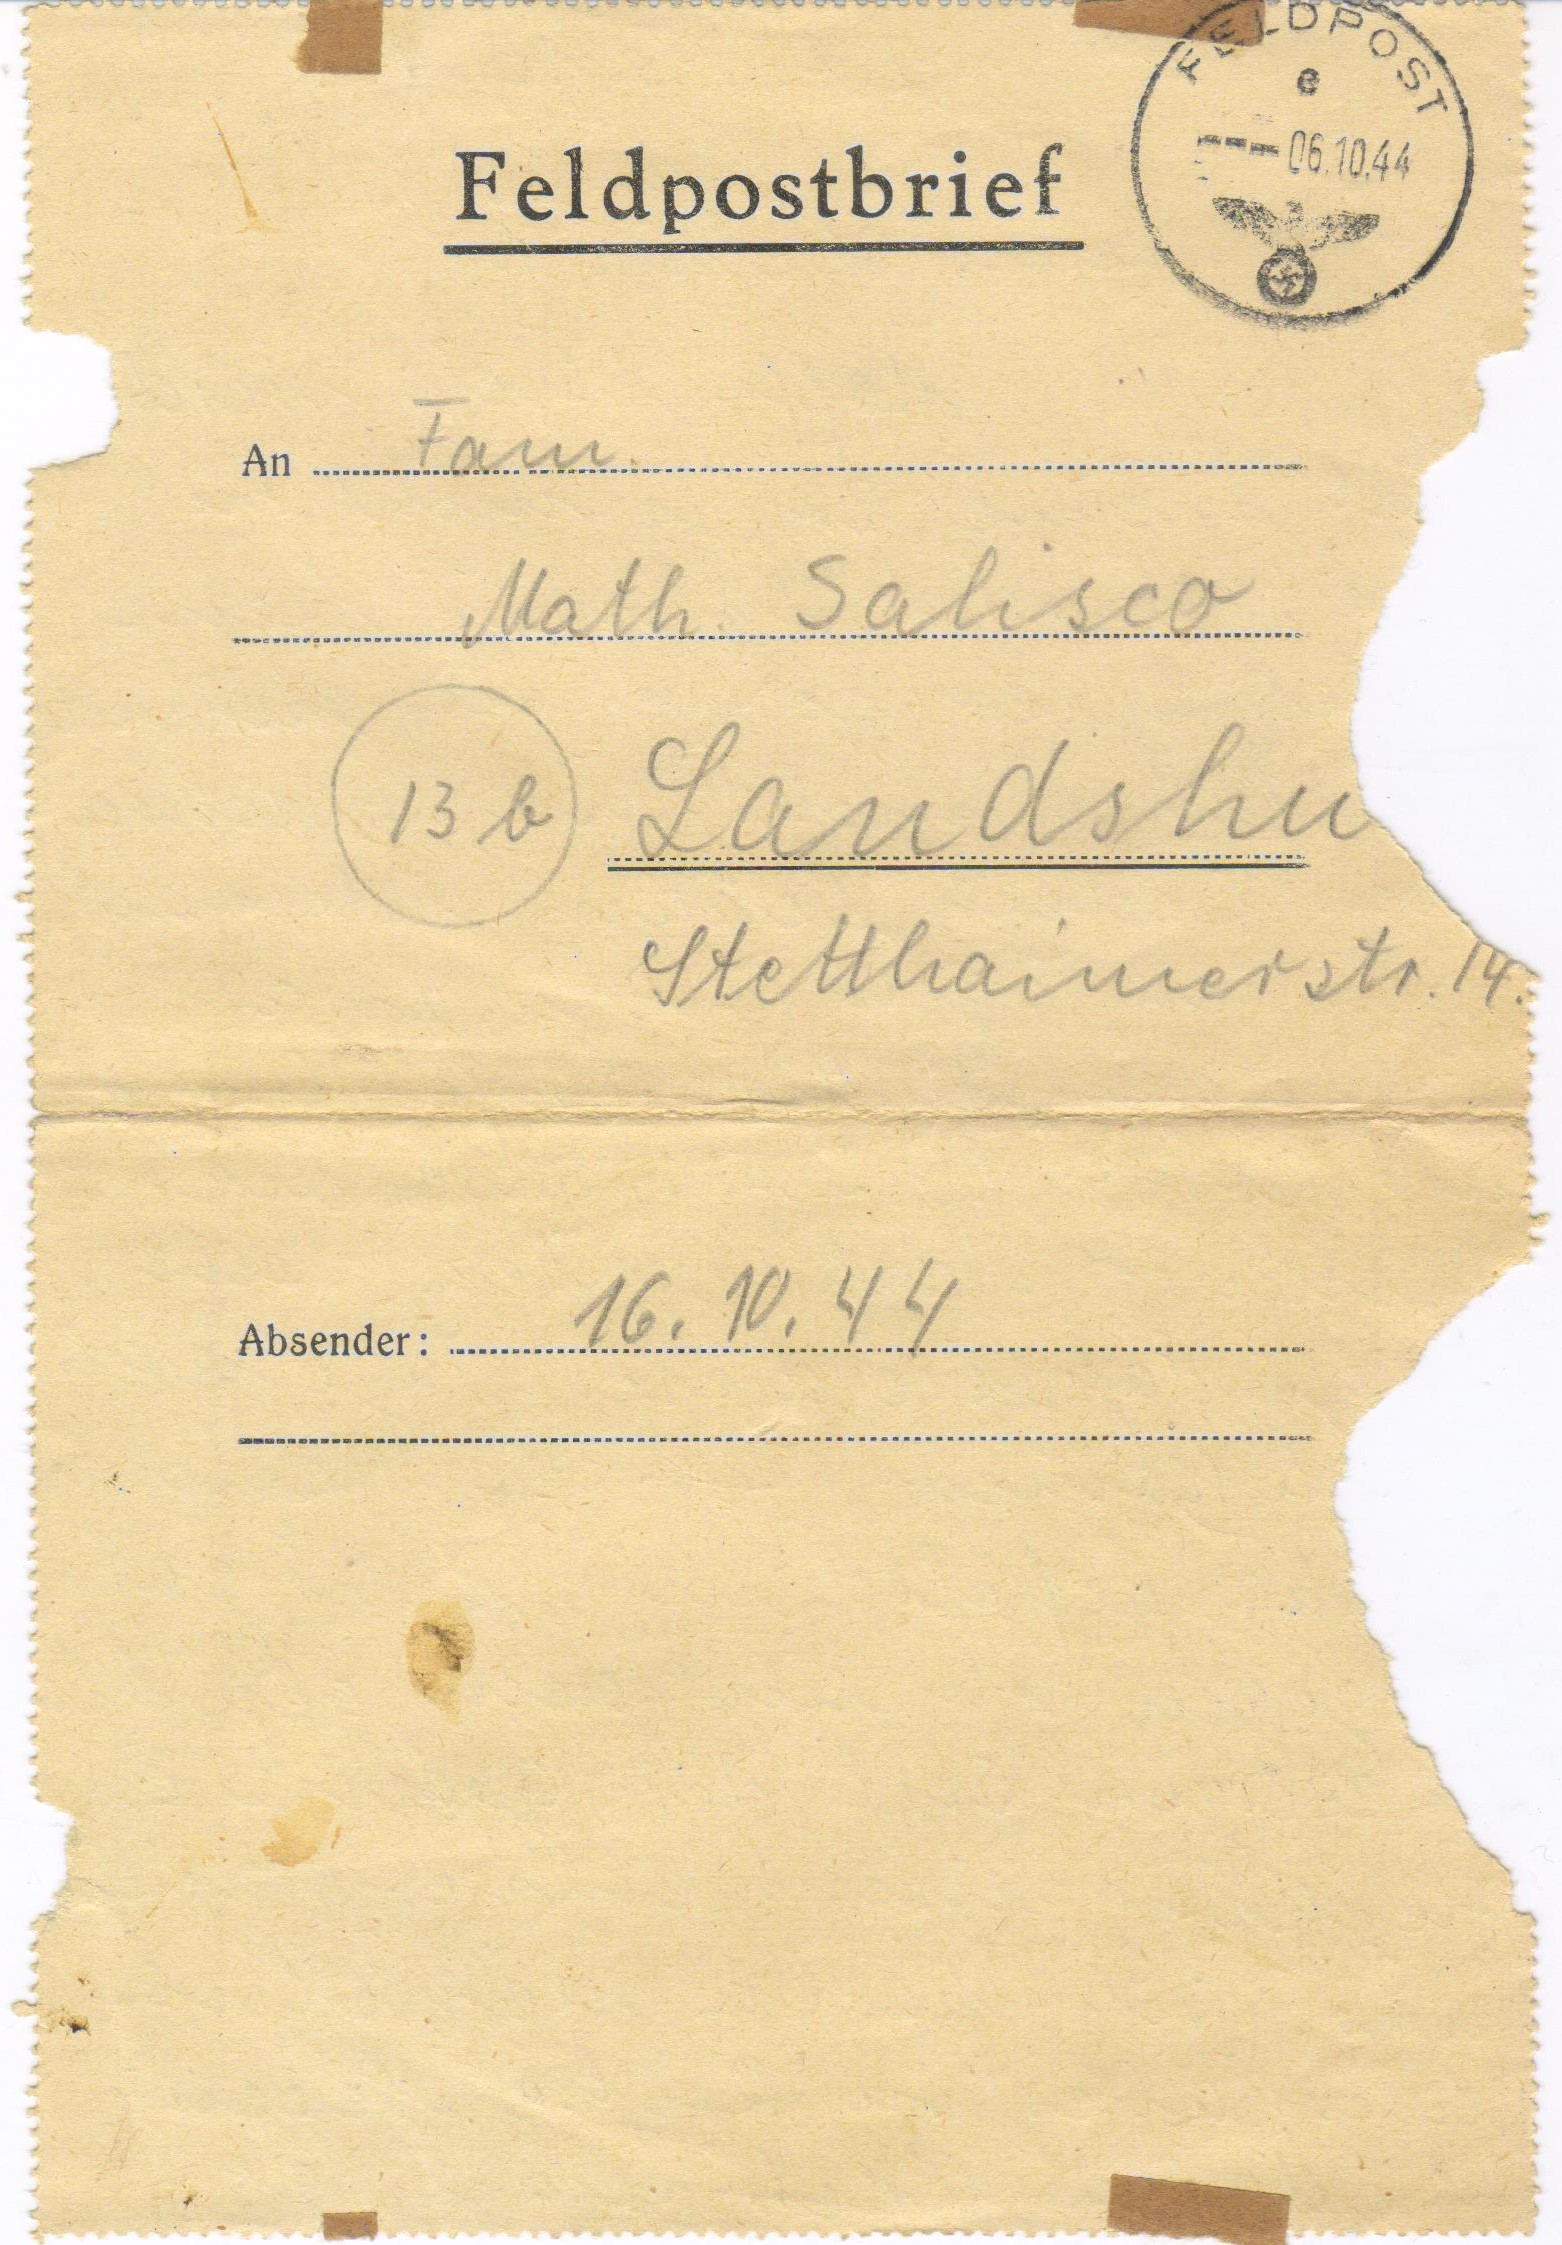 FELDPOST
e
06.10.44
Feldpostbrief
An Fam.
Math. Salisco
13 b Landshu
Stetthaimerstr. 14.
Absender: 16. 10. 44